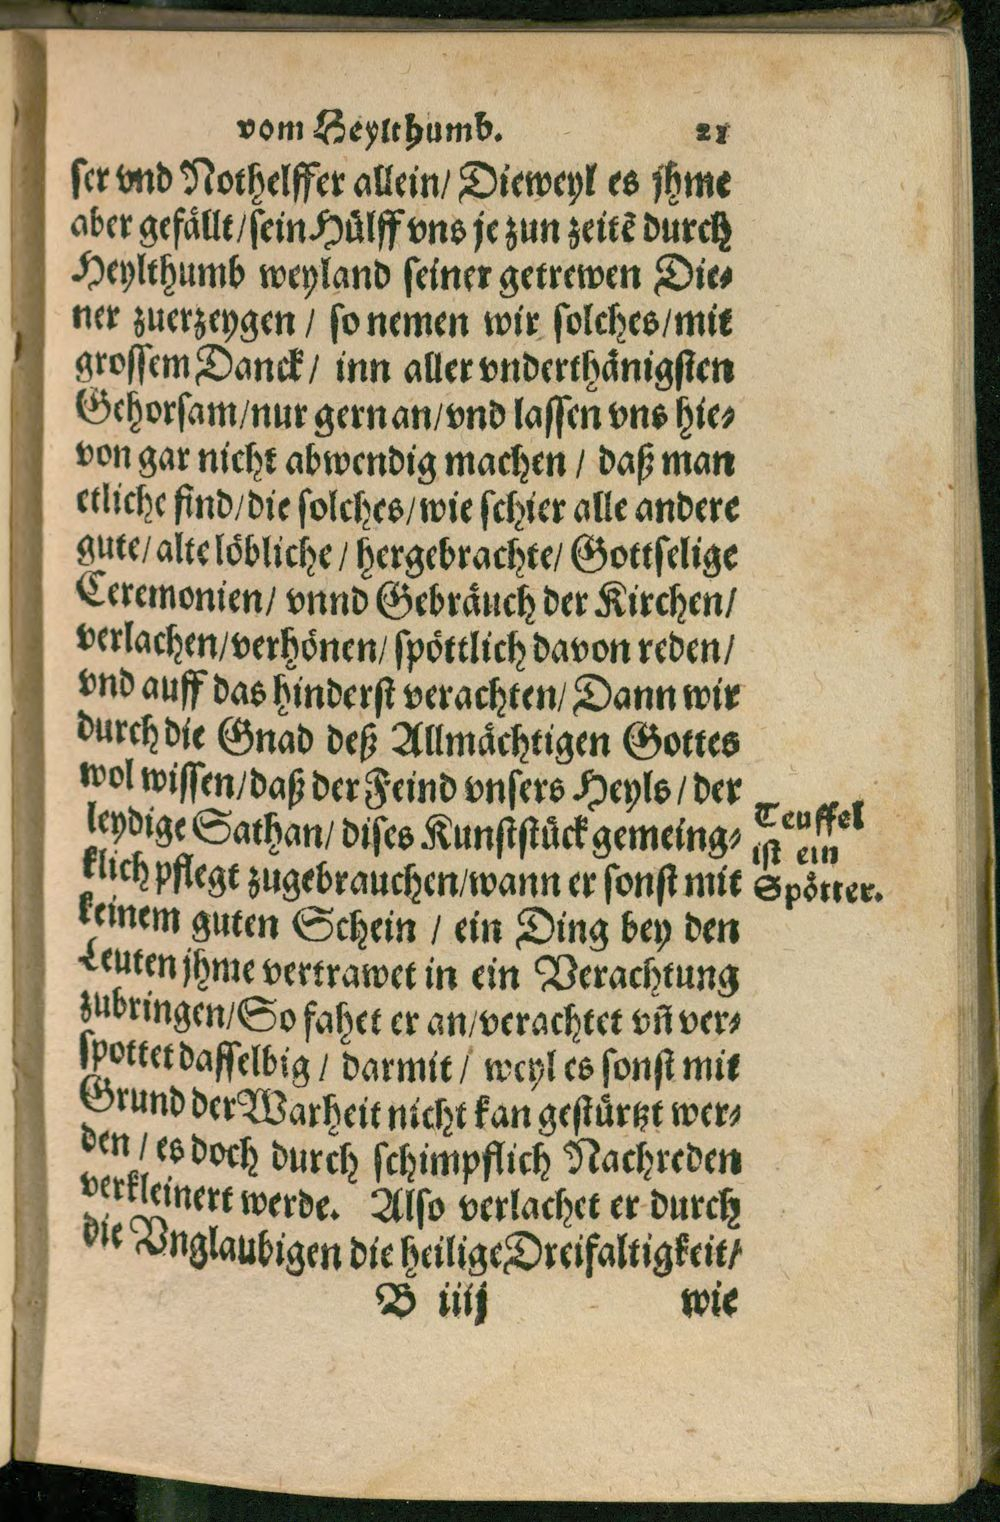 vom Heylthumb. 21
ser vnd Nothelffer allein/ Dieweyl es jhme
aber gefällt/sein Hülff vns je zun zeitē durch
Heylthumb weyland seiner getrewen Die-
ner zuerzeygen / so nemen wir solches/mit
grossem Danck/ inn aller vnderthänigsten
Gehorsam/nur gern an/vnd lassen vns hie-
von gar nicht abwendig machen / daß man
etliche find/die solches/wie schier alle andere
gute/alte löbliche / hergebrachte/ Gottselige
Ceremonien/ vnnd Gebräuch der Kirchen/
verlachen/verhönen/ spöttlich davon reden/
vnd auff das hinderst verachten/ Dann wir
durch die Gnad deß Allmächtigen Gottes
wol wissen/daß der Feind vnsers Heyls / der
leydige Sathan/ dises Kunststück gemeing-
klich pflegt zugebrauchen/wann er sonst mit
keinem guten Schein / ein Ding bey den
Leuten jhme vertrawet in ein Verachtung
zubringen/So fahet er an/verachtet vñ ver-
spottet dasselbig / darmit / weyl es sonst mit
Grund der Warheit nicht kan gestürtzt wer-
den / es doch durch schimpflich Nachreden
verkleinert werde. Also verlachet er durch
die Vnglaubigen die heilige Dreifaltigkeit/
B iiij wie
Teuffel
ist ein
Spötter.